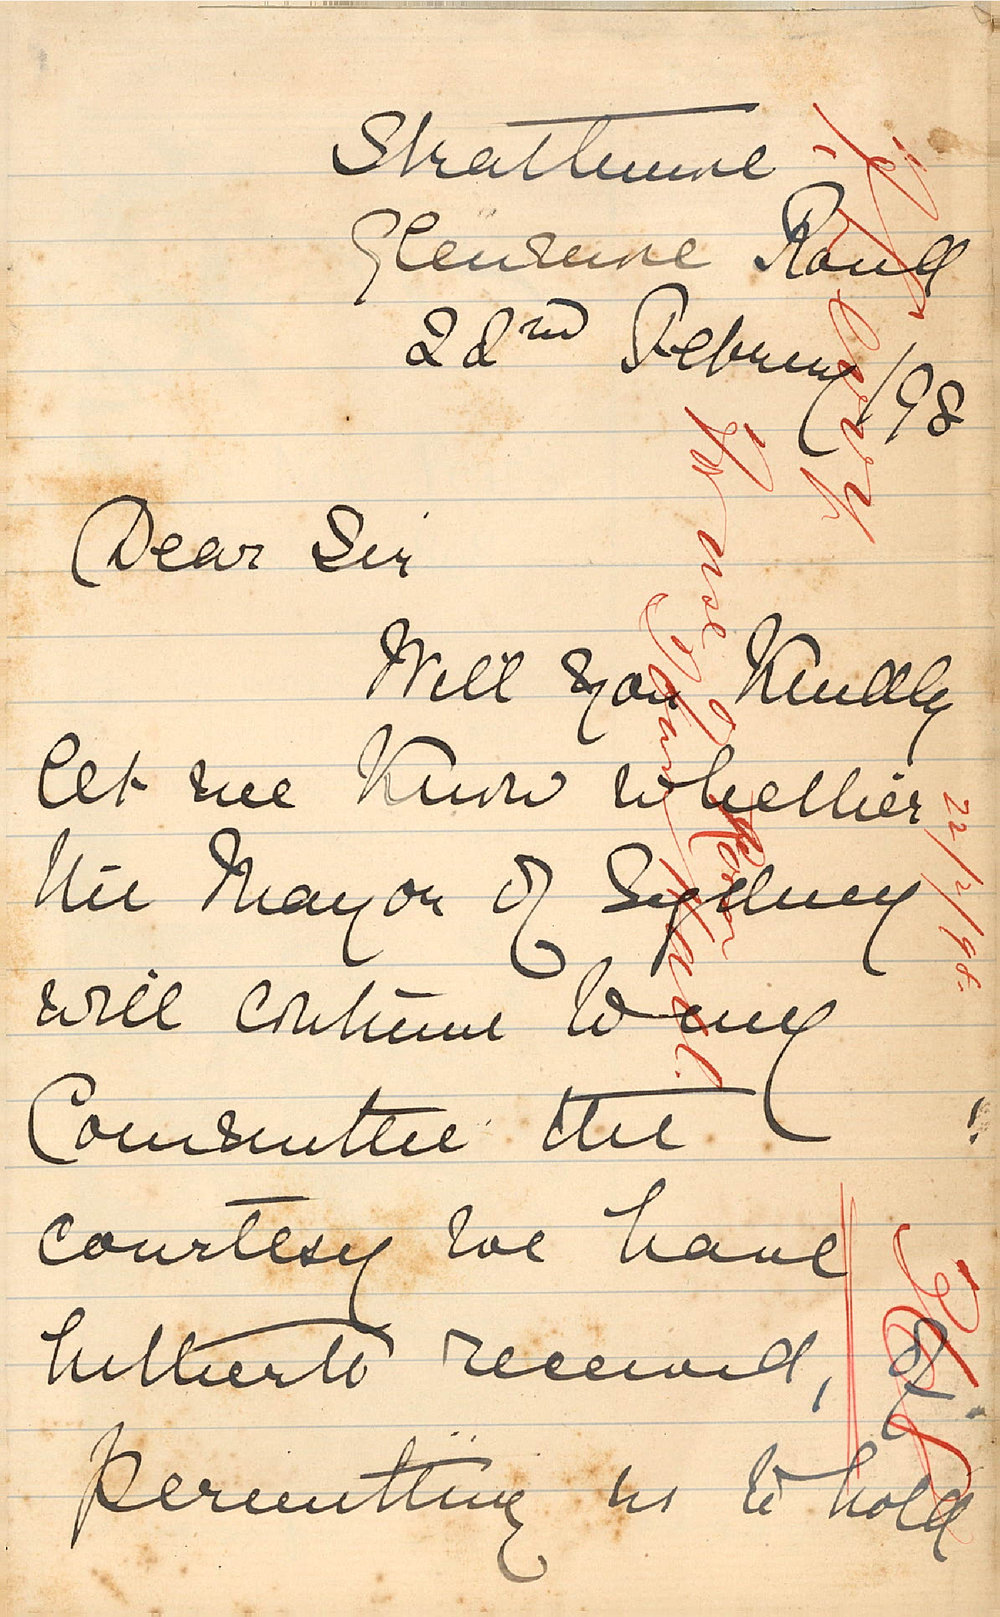 Strathmore
Glenmore Road
22nd Februy /98
Dear Sir
Will you Kindly
let me Know whether
the Mayor of Sydney
will continue to my
Committee the
courtesy we have
hitherto received, of
permitting us to hold
for use of
Town Hall.
22/2/98.